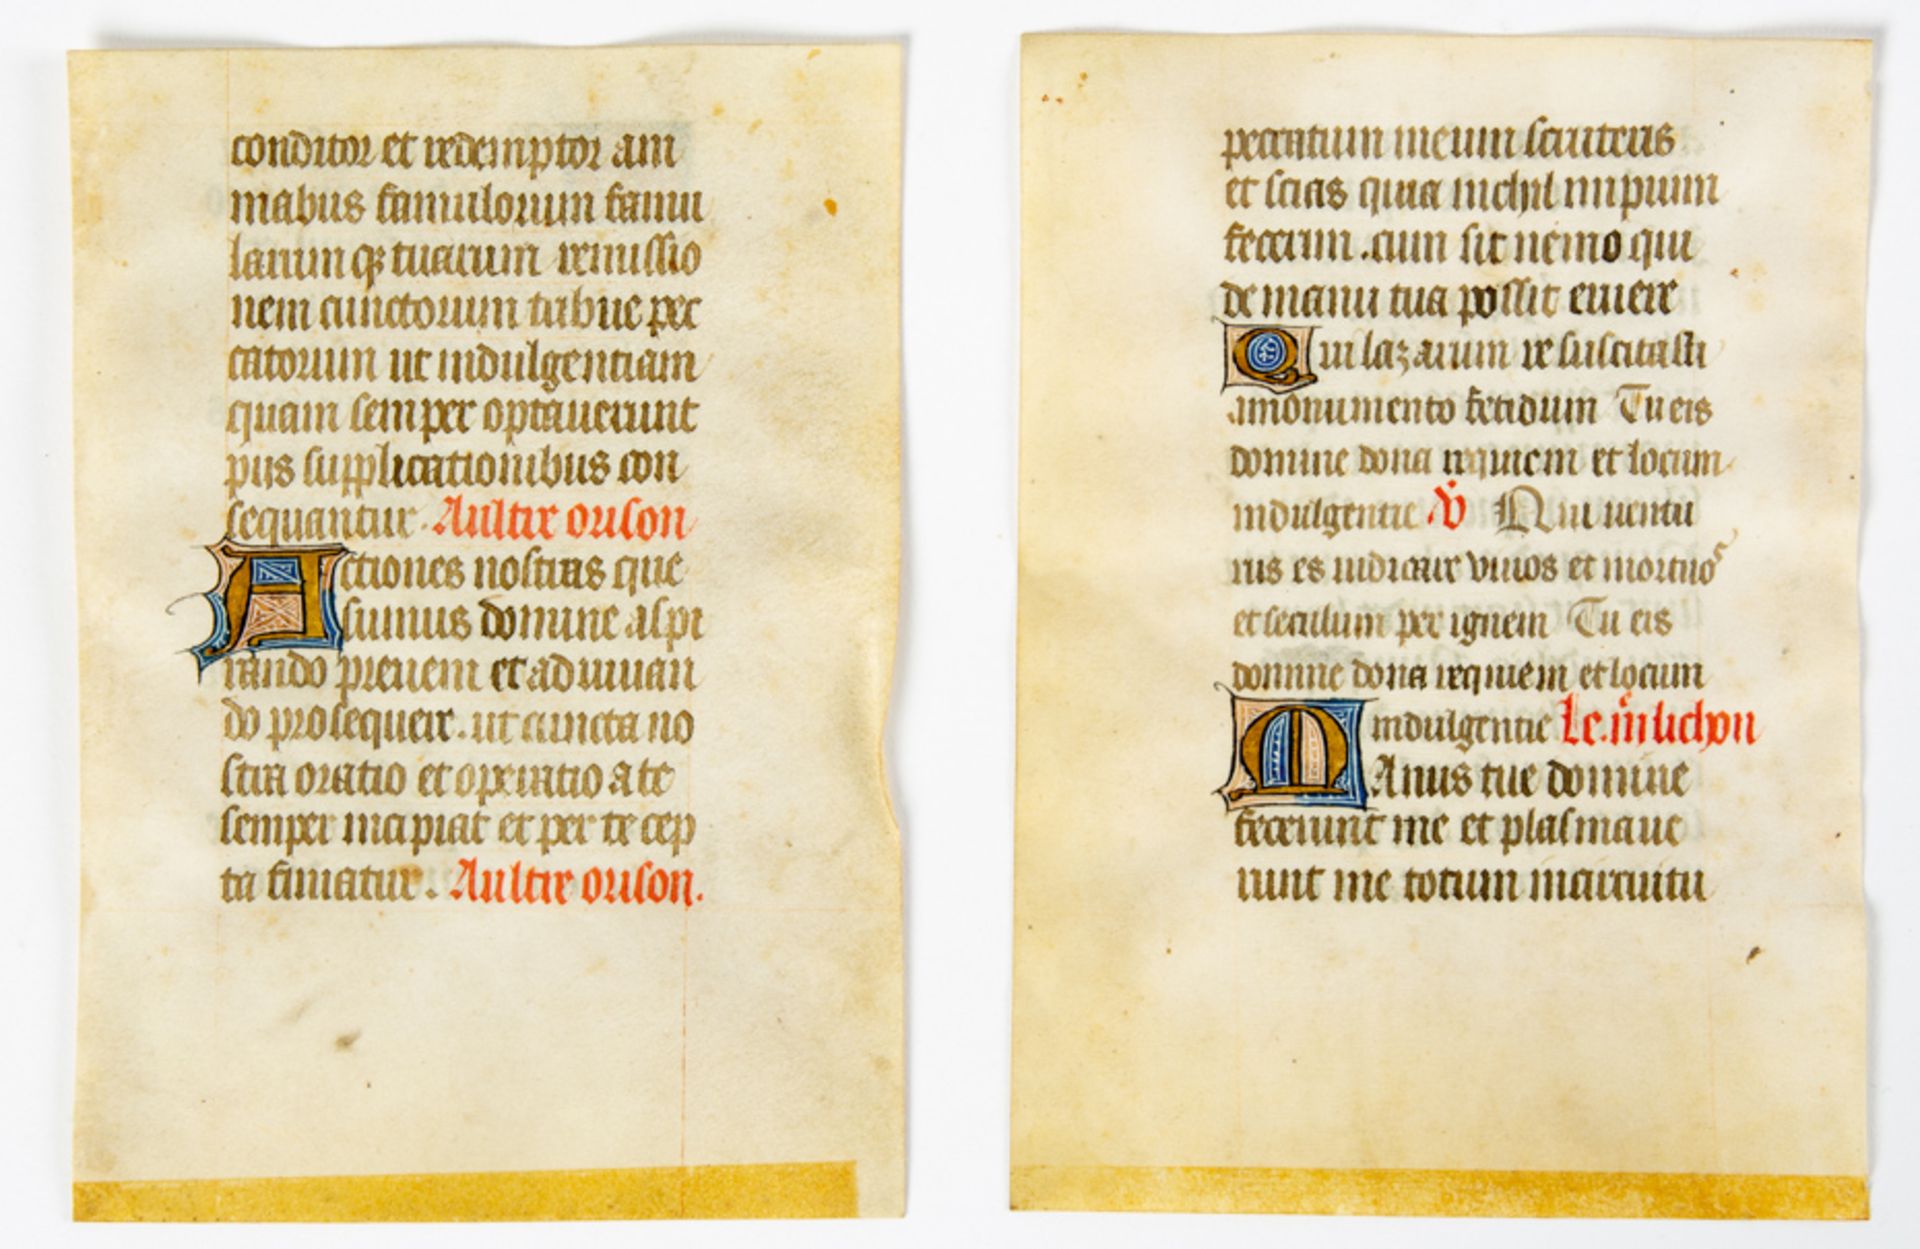 conditor et redemptor ani
mabus famulorum famu
larumqꝫ tuarum remissio
nem cunctorum tribue pec
catorum ut indulgentiam
quam semper optauerunt
piis supplicationibus con
sequantur. Aultre orison
Actiones nostras que
sumus domine aspi
rando preueni et adiuuan
do prosequere. ut cuncta no
stra oratio et operatio a te
semper incipiat et per te cep
ta finiatur. Aultre orison.
peccatum meum scruteris
et scias quia nichil impium
fecerim. cum sit nemo qui
de manu tua possit eruere
Qui lazarum resuscitasti
a monumento fetidum Tu eis
domine dona requiem et locum
indulgentie V̇ Qui ventu
rus es iudicare viuos et mortuoˢ
et seculum per ignem Tu eis
domine dona requiem et locum
indulgentie Le.
Manus tue domine
fecerunt me et plasmaue
runt me totum in circuitu